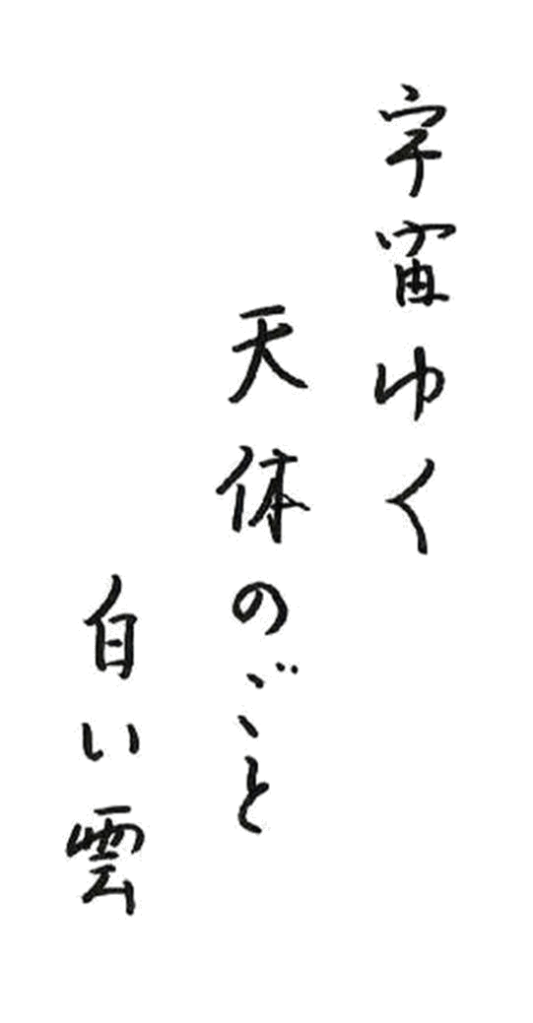 宇宙ゆく
天体のごと
白い雲